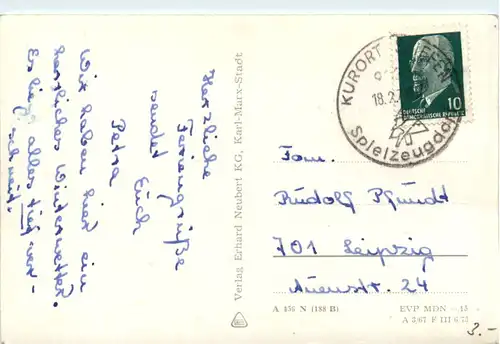 Herzliche
Feriengrüße
sendet Euch
Petra
Wir haben hier ein
herrliches Winterwetter.
Es liegt alles tief ver-
schneit.
Verlag Erhard Neubert KG, Karl-Marx-Stadt
KURORT
18.2.
Spielzeugdo
DEUTSCHE
DEMOKRATISCHE REPUBLIK
10
Fam.
Rudolf Pfundt
701 Leipzig
Auenstr. 24
A 456 N (188 B)
EVP MDN -.15
A 3/67 F III 6/73
3.-